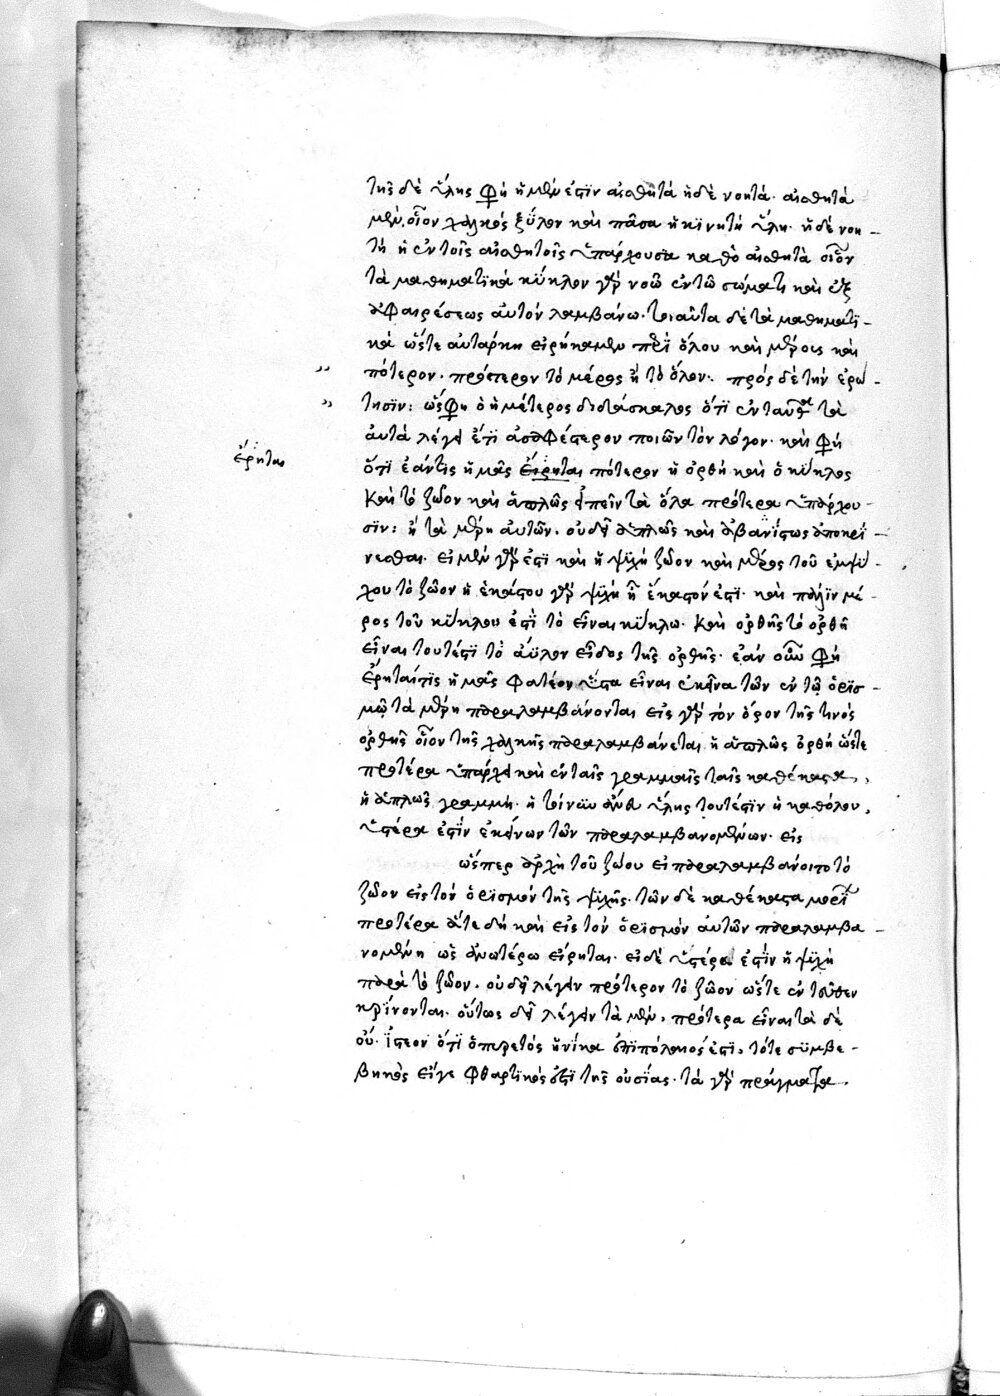 τῆς δὲ ὕλης φη ἡ μὲν ἐστὶν αἰσθητὰ ἡ δὲ νοητά· αἰσθητὰ
μὲν, οἷον χαλκὸς ξύλον καὶ πᾶσα ἡ κϊνητὴ ὕλη· ἡ δὲ νοη-
τὴ ἡ ἐν τοῖς αἰσθητοῖς ὑπάρχουσα καθὸ αἰσθητὰ οἷον
τὰ μαθηματϊκὰ κύκλον γὰρ νοῶ ἐν τῶ σώματι καὶ ἐξ
ἀφαιρέσεως αὐτὸν λαμβάνω. τοιαῦτα δὲ τὰ μαθηματϊ-
κὰ ὥστε αὐτάρκη εἰρήκαμεν περὶ ὅλου καὶ μέρους καὶ
πότερον· πρότερον τὸ μέρος ἢ τὸ ὅλον· πρὸς δὲ τὴν ἐρώ-
τησϊν: ὥς φη ὁ ἡμέτερος διδάσκαλος ὅτϊ ἐνταῦθα τὰ
αὐτὰ λέγει ἔτϊ ἀσαφέστερον ποιῶν τὸν λόγον· καὶ φη
ἔρηται
ὅτϊ ἐάν τις ἡμᾶς εἴρηται πότερον ἡ ὀρθὴ καὶ ὁ κύκλος
καὶ τὸ ζῶον καὶ ἁπλῶς εἰπεῖν τὰ ὅλα πρότερα ὑπάρχου-
σϊν: ἢ τὰ μέρη αὐτῶν. οὐ δεῖ ἁπλῶς καὶ ἀβανίστως ἀποκρί-
νεσθαι. εἰ μὲν γάρ ἐστϊ καὶ ἡ ψϋχὴ ζῶον καὶ μέρος τοῦ ἐμψύ
χου τὸ ζῶον ἢ ἑκάστου γὰρ ψϋχὴ ἡ ἕκαστόν ἐστϊ· καὶ πάλϊν μέ-
ρος τοῦ κύκλου ἐστϊ τὸ εἶναι κύκλω. καὶ ὀρθῆς τὸ ὀρθῆ
εἶναι τουτέστϊ τὸ ἄϋλον εἶδος τῆς ὀρθῆς· ἐὰν οὖν φη
ἔρηταί τις ἡμᾶς φατέον ὕστερα εἶναι ἐκεῖνα τῶν ἐν τῶ ὁρισ-
μῶ τὰ μέρη παραλαμβάνονται εἰς γὰρ τὸν ὅρον τῆς τινὸς
ὀρθῆς οἷον τῆς χαλκῆς παραλαμβάνεται ἡ ἁπλῶς ὀρθὴ ὥστε
προτέρα ὑπάρχει καὶ ἐν ταῖς γραμμαῖς ταῖς καθέκαστα,
ἡ ἁπλῶς γραμμὴ· ἡ τοίνυν ἄνευ ὕλης τουτέστιν ἡ καθόλου,
ὑστέρα ἐστὶν ἐκείνων τῶν παραλαμβανομένων· εἰς
ὥσπερ ἀρχὴ τοῦ ζώου εἰ παραλαμβάνοιτο τὸ
ζῶον εἰς τὸν ὁρϊσμὸν τῆς ψϋχῆς· τῶν δὲ καθέκαστα μορίων
προτέρα ἅτε δὴ καὶ εἰς τὸν ὁρϊσμὸν αὐτῶν παραλαμβα-
νομένη ὡς ἀνωτέρω εἴρηται· εἰ δὲ ὑστέρα ἐστὶν ἡ ψϋχὴ
παρὰ τὸ ζῶον. οὐ δεῖ λέγειν πρότερον τὸ ζῶον ὥστε ἐντεῦθεν
κρίνονται. οὕτως δεῖ λέγειν τὰ μὲν, πρότερα εἶναι τὰ δὲ
οὔ. ἰστέον ὅτϊ ὁ πυρετὸς ἡνίκα ἐπϊπόλαιός ἐστϊ, τότε σϋμβε-
βηκὸς εἴγε φθαρτϊκός ἐστϊ τῆς οὐσίας· τὰ γὰρ πράγματα.